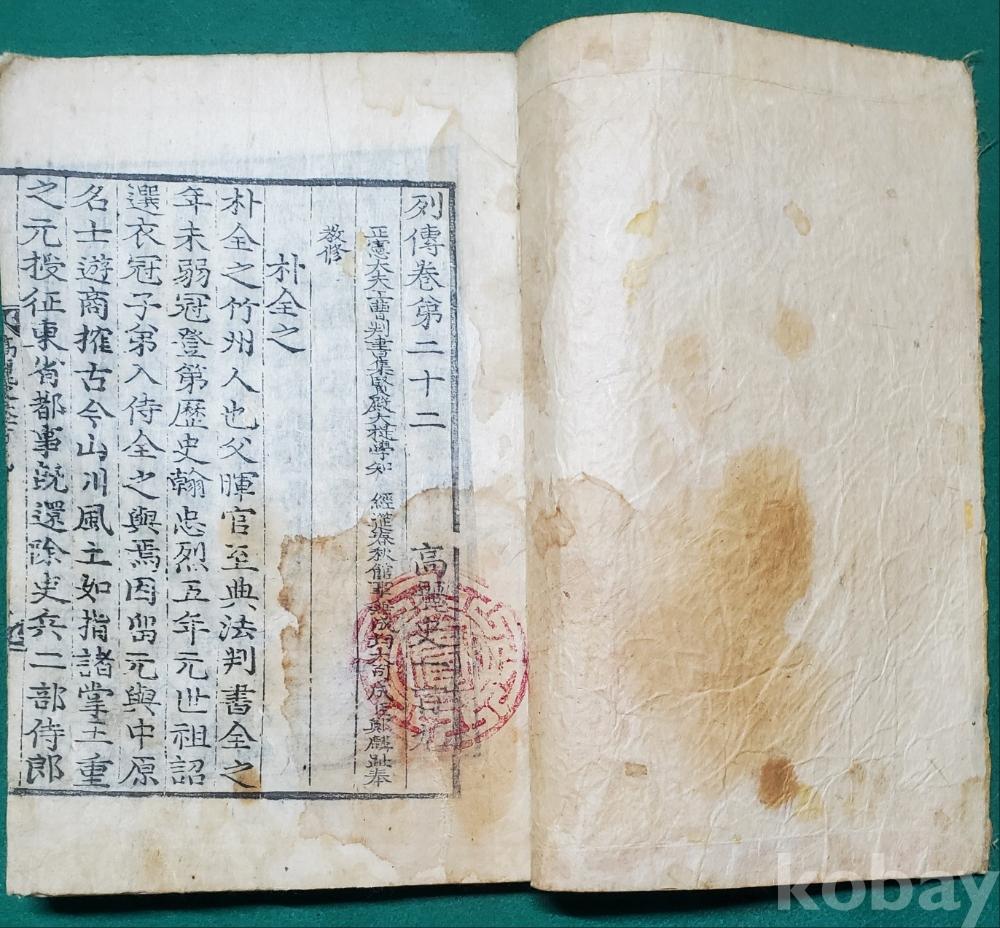 列傳卷第二十二 高麗史一百九
正憲大夫工曹判書集賢殿大提學知 經筵春秋館事兼成均大司成臣鄭麟趾奉
敎修
朴全之
朴全之竹州人也父暉官至典法判書全之
年未弱冠登第歷史翰忠烈五年元世祖詔
選衣冠子弟入侍全之與焉因留元與中原
名士遊商搉古今山川風土如指諸掌士重
之元授征東省都事旣還除吏兵二部侍郎
kobay